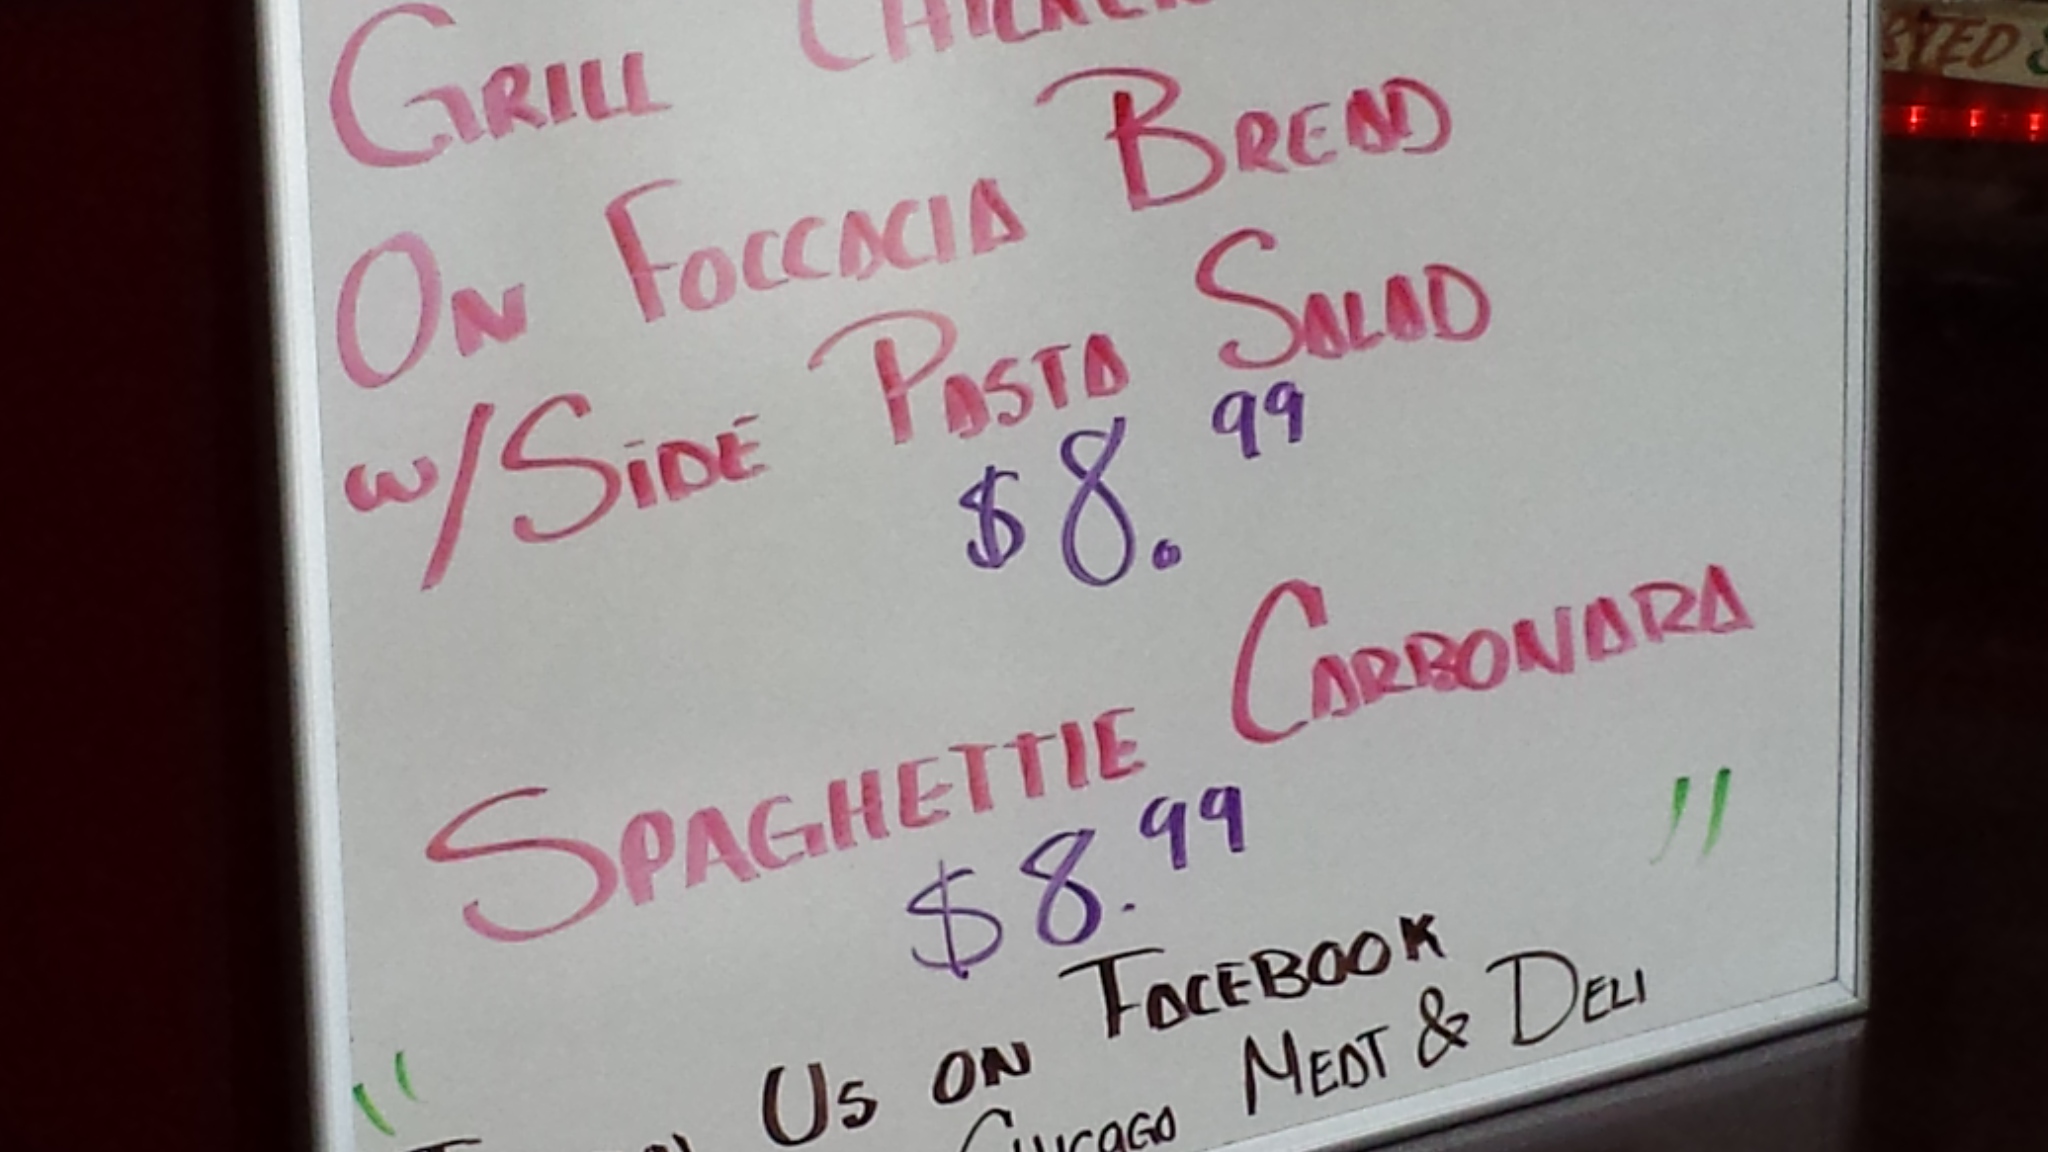 GRILL CHICKEN
ON FOCCACIA BREAD
W/SIDE PASTA SALAD
$8.99
SPAGHETTIE CARBONARA
$8.99
"                                "
US ON FACEBOOK
CHICAGO MEAT & DELI